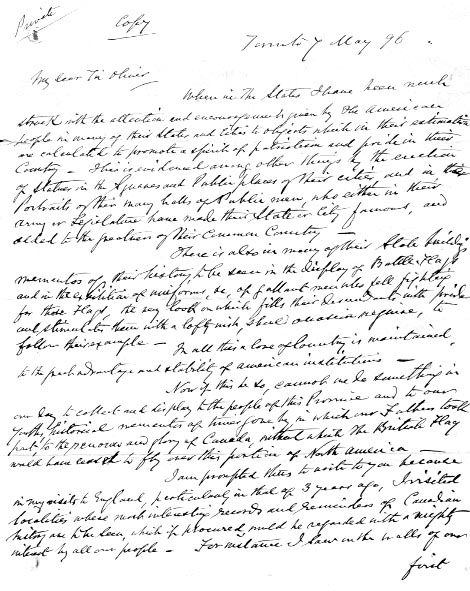 Private
Copy
Toronto 7 May 96.
My dear Sir Oliver
When in the States I have been much
struck with the attention and encouragement given by the American
people in many of their States and cities to objects which in their estimation
are calculated to promote a spirit of patriotism and pride in their
Country – This is evidenced among other things by the erection
of statues in the Squares and Public places of their cities, and in the
Portraits of their many halls of Public men, who either in their
army or Legislature have made their State or City famous, and
added to the greatness of their Common Country –
There is also in many of their State buildings
mementos of their history, to be seen in the display of Battle Flags
and in the exhibition of uniforms &c, of gallant men who fell fighting
for those Flags, the very look on which fills their descendants with pride
and stimulates them with a lofty wish, should occasion require, to
follow their example – In all this a love of Country is maintained,
to the great advantage and stability of American institutions –
Now if this be so, cannot we do something in
our day to collect and display to the people of this Province and to our
youth, historical mementos of times gone by in which our Fathers took
part, to the renown and glory of Canada, without which The British Flag
would have ceased to fly over this portion of North America –
I am prompted thus to write to you because
in my visits to England, particularly in that of 3 years ago, I visited
localities where most interesting records and reminders of Canadian
history are to be seen, which if procured would be regarded with a mighty
interest by all our people – For instance I saw on the walls of our
first